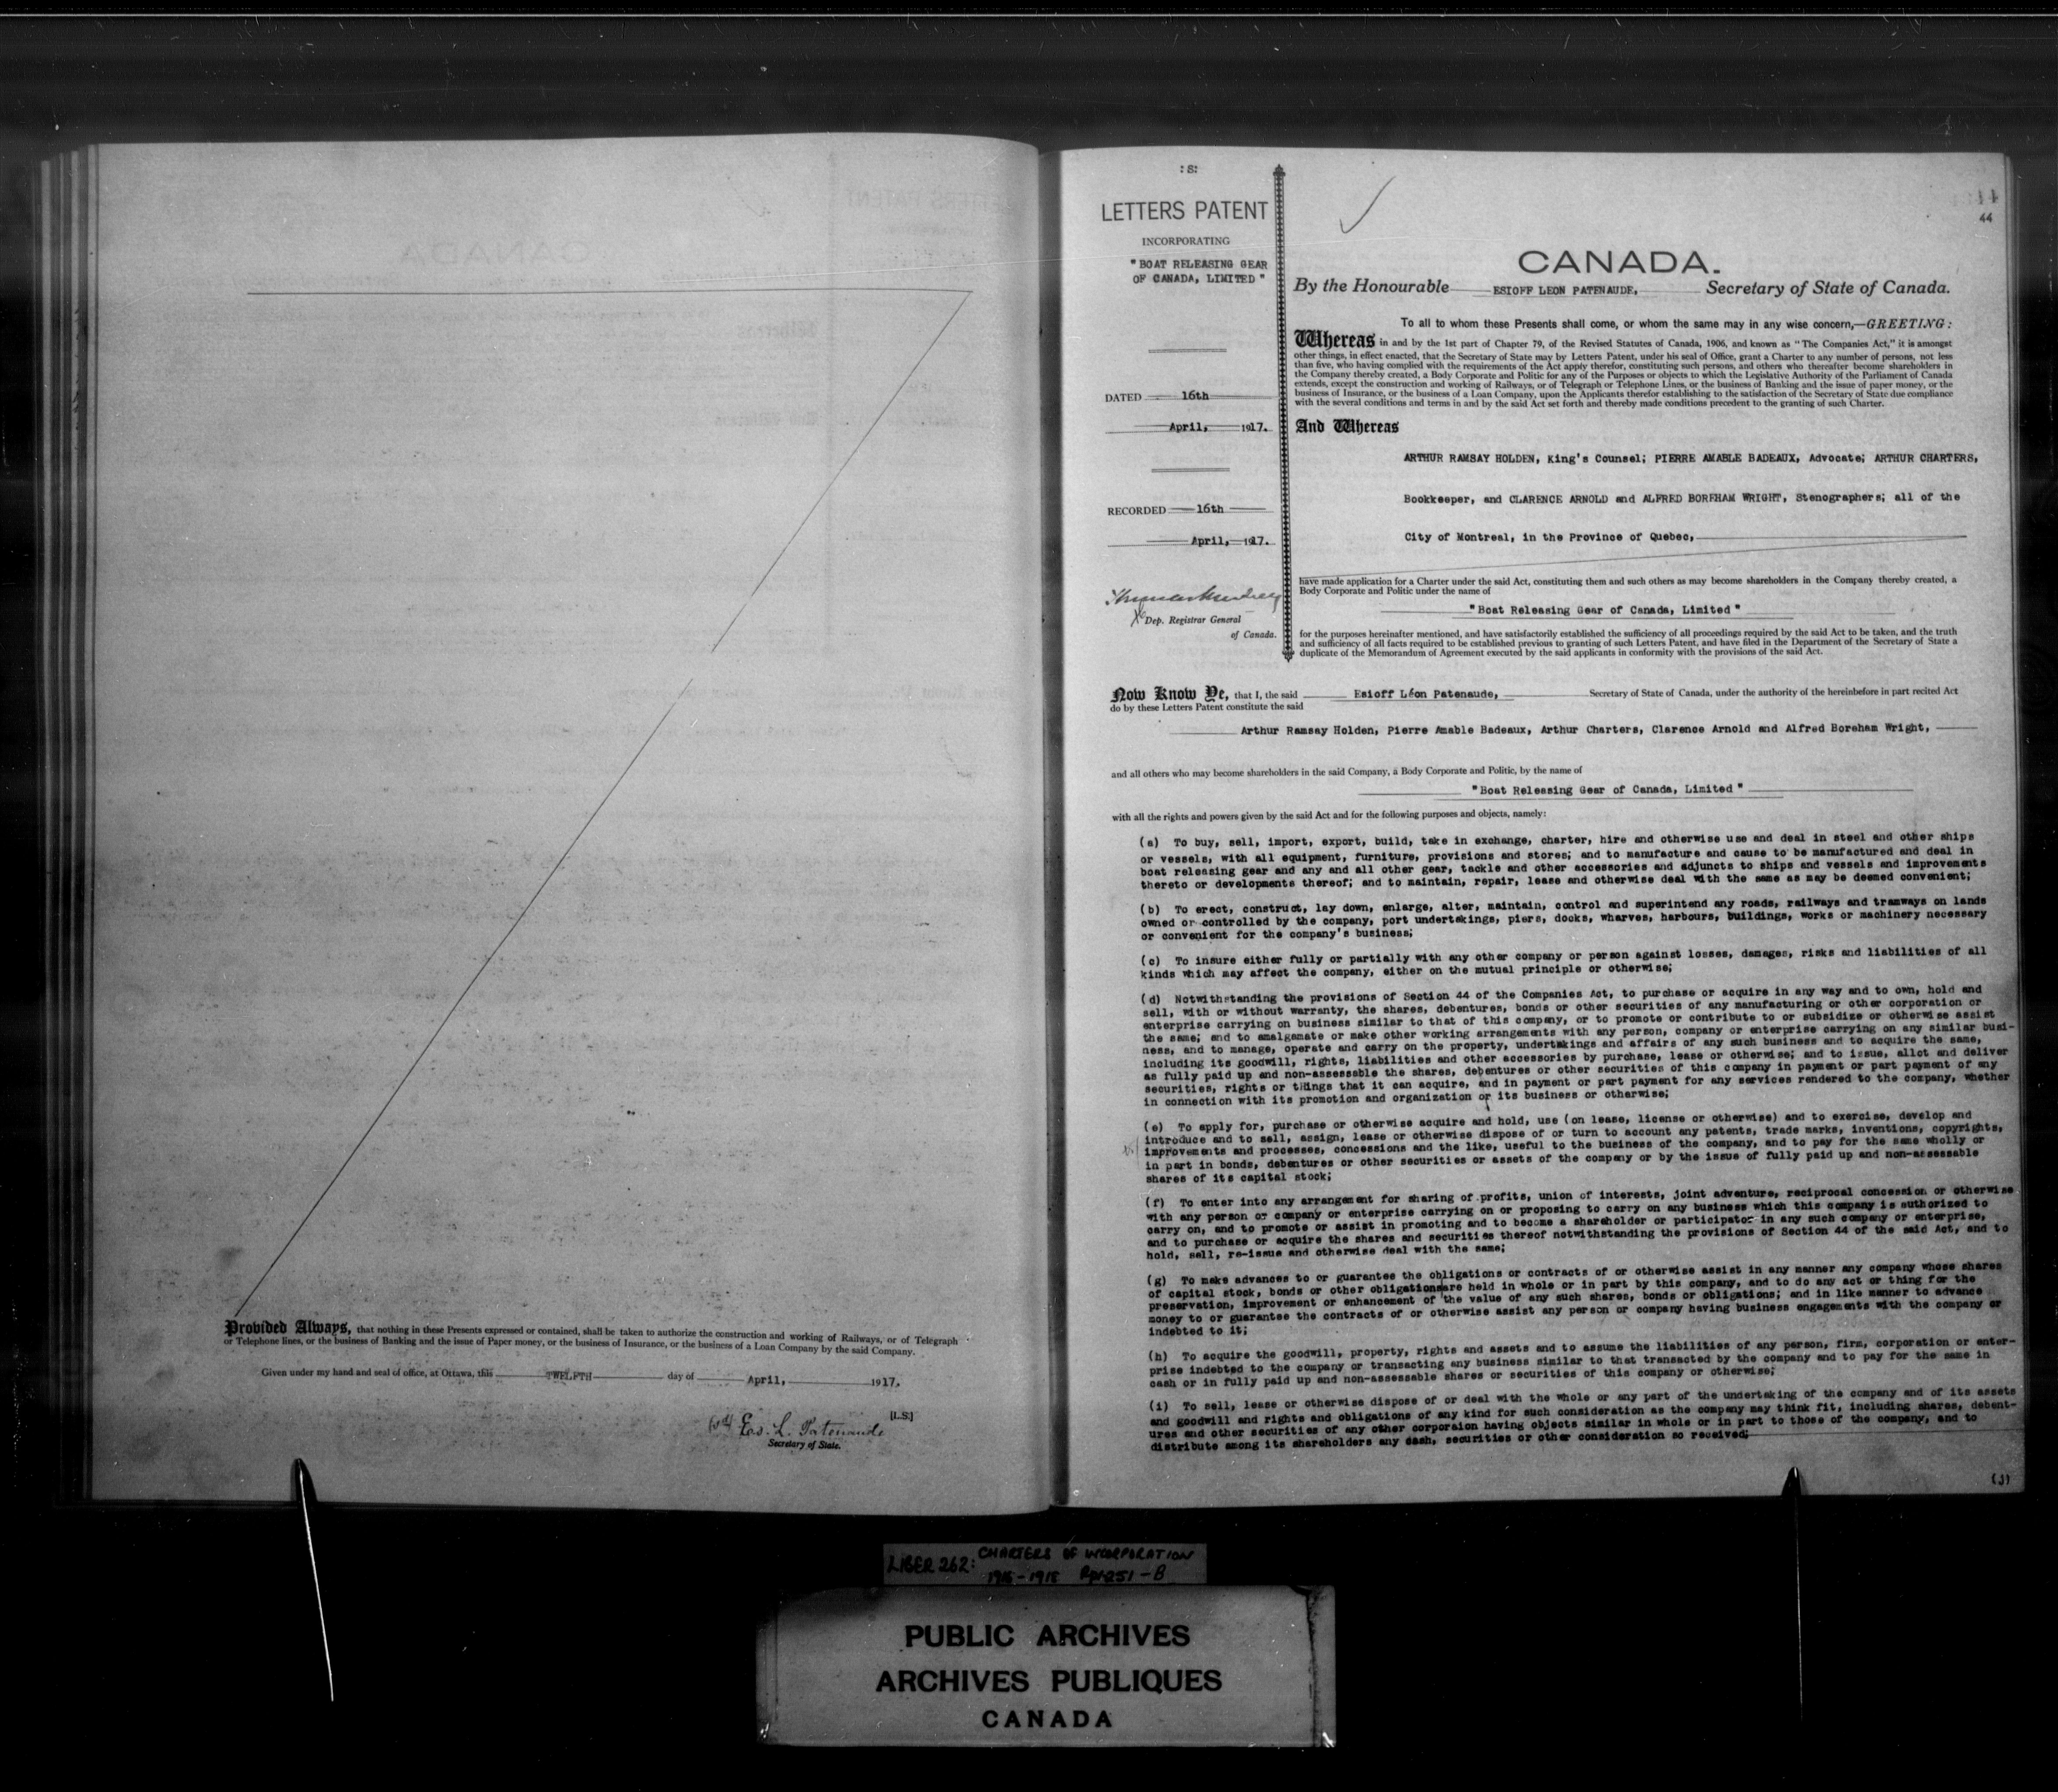 Provided Always, that nothing in these Presents expressed or contained, shall be taken to authorize the construction and working of Railways, or of Telegraph
or Telephone lines, or the business of Banking and the issue of Paper money, or the business of Insurance, or the business of a Loan Company by the said Company.
Given under my hand and seal of office, at Ottawa, this TWELFTH day of April, 1917.
[L.S.]
(sd) Es. L. Patenaude
Secretary of State.
:S:
LETTERS PATENT
INCORPORATING
"BOAT RELEASING GEAR
OF CANADA, LIMITED"
DATED 16th
April, 1917.
RECORDED 16th
April, 1917.
Dep. Registrar General
of Canada.
44
CANADA.
By the Honourable ESIOFF LEON PATENAUDE, Secretary of State of Canada.
To all to whom these Presents shall come, or whom the same may in any wise concern,—GREETING:
Whereas in and by the 1st part of Chapter 79, of the Revised Statutes of Canada, 1906, and known as "The Companies Act," it is amongst
other things, in effect enacted, that the Secretary of State may by Letters Patent, under his seal of Office, grant a Charter to any number of persons, not less
than five, who having complied with the requirements of the Act apply therefor, constituting such persons, and others who thereafter become shareholders in
the Company thereby created, a Body Corporate and Politic for any of the Purposes or objects to which the Legislative Authority of the Parliament of Canada
extends, except the construction and working of Railways, or of Telegraph or Telephone Lines, or the business of Banking and the issue of paper money, or the
business of Insurance, or the business of a Loan Company, upon the Applicants therefor establishing to the satisfaction of the Secretary of State due compliance
with the several conditions and terms in and by the said Act set forth and thereby made conditions precedent to the granting of such Charter.
And Whereas
ARTHUR RAMSAY HOLDEN, King's Counsel; PIERRE AMABLE BADEAUX, Advocate; ARTHUR CHARTERS,
Bookkeeper, and CLARENCE ARNOLD and ALFRED BOREHAM WRIGHT, Stenographers; all of the
City of Montreal, in the Province of Quebec,
have made application for a Charter under the said Act, constituting them and such others as may become shareholders in the Company thereby created, a
Body Corporate and Politic under the name of
"Boat Releasing Gear of Canada, Limited"
for the purposes hereinafter mentioned, and have satisfactorily established the sufficiency of all proceedings required by the said Act to be taken, and the truth
and sufficiency of all facts required to be established previous to granting of such Letters Patent, and have filed in the Department of the Secretary of State a
duplicate of the Memorandum of Agreement executed by the said applicants in conformity with the provisions of the said Act.
Now Know Ye, that I, the said Esioff Léon Patenaude, Secretary of State of Canada, under the authority of the hereinbefore in part recited Act
do by these Letters Patent constitute the said
Arthur Ramsay Holden, Pierre Amable Badeaux, Arthur Charters, Clarence Arnold and Alfred Boreham Wright,
and all others who may become shareholders in the said Company, a Body Corporate and Politic, by the name of
"Boat Releasing Gear of Canada, Limited"
with all the rights and powers given by the said Act and for the following purposes and objects, namely:
(a) To buy, sell, import, export, build, take in exchange, charter, hire and otherwise use and deal in steel and other ships
or vessels, with all equipment, furniture, provisions and stores; and to manufacture and cause to be manufactured and deal in
boat releasing gear and any and all other gear, tackle and other accessories and adjuncts to ships and vessels and improvements
thereto or developments thereof; and to maintain, repair, lease and otherwise deal with the same as may be deemed convenient;
(b) To erect, construct, lay down, enlarge, alter, maintain, control and superintend any roads, railways and tramways on lands
owned or controlled by the company, port undertakings, piers, docks, wharves, harbours, buildings, works or machinery necessary
or convenient for the company's business;
(c) To insure either fully or partially with any other company or person against losses, damages, risks and liabilities of all
kinds which may affect the company, either on the mutual principle or otherwise;
(d) Notwithstanding the provisions of Section 44 of the Companies Act, to purchase or acquire in any way and to own, hold and
sell, with or without warranty, the shares, debentures, bonds or other securities of any manufacturing or other corporation or
enterprise carrying on business similar to that of this company, or to promote or contribute to or subsidize or otherwise assist
the same; and to amalgamate or make other working arrangements with any person, company or enterprise carrying on any similar busi-
ness, and to manage, operate and carry on the property, undertakings and affairs of any such business and to acquire the same,
including its goodwill, rights, liabilities and other accessories by purchase, lease or otherwise; and to issue, allot and deliver
as fully paid up and non-assessable the shares, debentures or other securities of this company in payment or part payment of any
securities, rights or things that it can acquire, and in payment or part payment for any services rendered to the company, whether
in connection with its promotion and organization or its business or otherwise;
(e) To apply for, purchase or otherwise acquire and hold, use (on lease, license or otherwise) and to exercise, develop and
introduce and to sell, assign, lease or otherwise dispose of or turn to account any patents, trade marks, inventions, copyrights,
improvements and processes, concessions and the like, useful to the business of the company, and to pay for the same wholly or
in part in bonds, debentures or other securities or assets of the company or by the issue of fully paid up and non-assessable
shares of its capital stock;
(f) To enter into any arrangement for sharing of profits, union of interests, joint adventure, reciprocal concession or otherwise
with any person or company or enterprise carrying on or proposing to carry on any business which this company is authorized to
carry on, and to promote or assist in promoting and to become a shareholder or participator in any such company or enterprise,
and to purchase or acquire the shares and securities thereof notwithstanding the provisions of Section 44 of the said Act, and to
hold, sell, re-issue and otherwise deal with the same;
(g) To make advances to or guarantee the obligations or contracts of or otherwise assist in any manner any company whose shares
of capital stock, bonds or other obligations are held in whole or in part by this company, and to do any act or thing for the
preservation, improvement or enhancement of the value of any such shares, bonds or obligations; and in like manner to advance
money to or guarantee the contracts of or otherwise assist any person or company having business engagements with the company or
indebted to it;
(h) To acquire the goodwill, property, rights and assets and to assume the liabilities of any person, firm, corporation or enter-
prise indebted to the company or transacting any business similar to that transacted by the company and to pay for the same in
cash or in fully paid up and non-assessable shares or securities of this company or otherwise;
(i) To sell, lease or otherwise dispose of or deal with the whole or any part of the undertaking of the company and of its assets
and goodwill and rights and obligations of any kind for such consideration as the company may think fit, including shares, debent-
ures and other securities of any other corporaion having objects similar in whole or in part to those of the company, and to
distribute among its shareholders any cash, securities or other consideration so received;
(j)
LIBER 262: CHARTERS OF INCORPORATION
1916-1918
PUBLIC ARCHIVES
ARCHIVES PUBLIQUES
CANADA